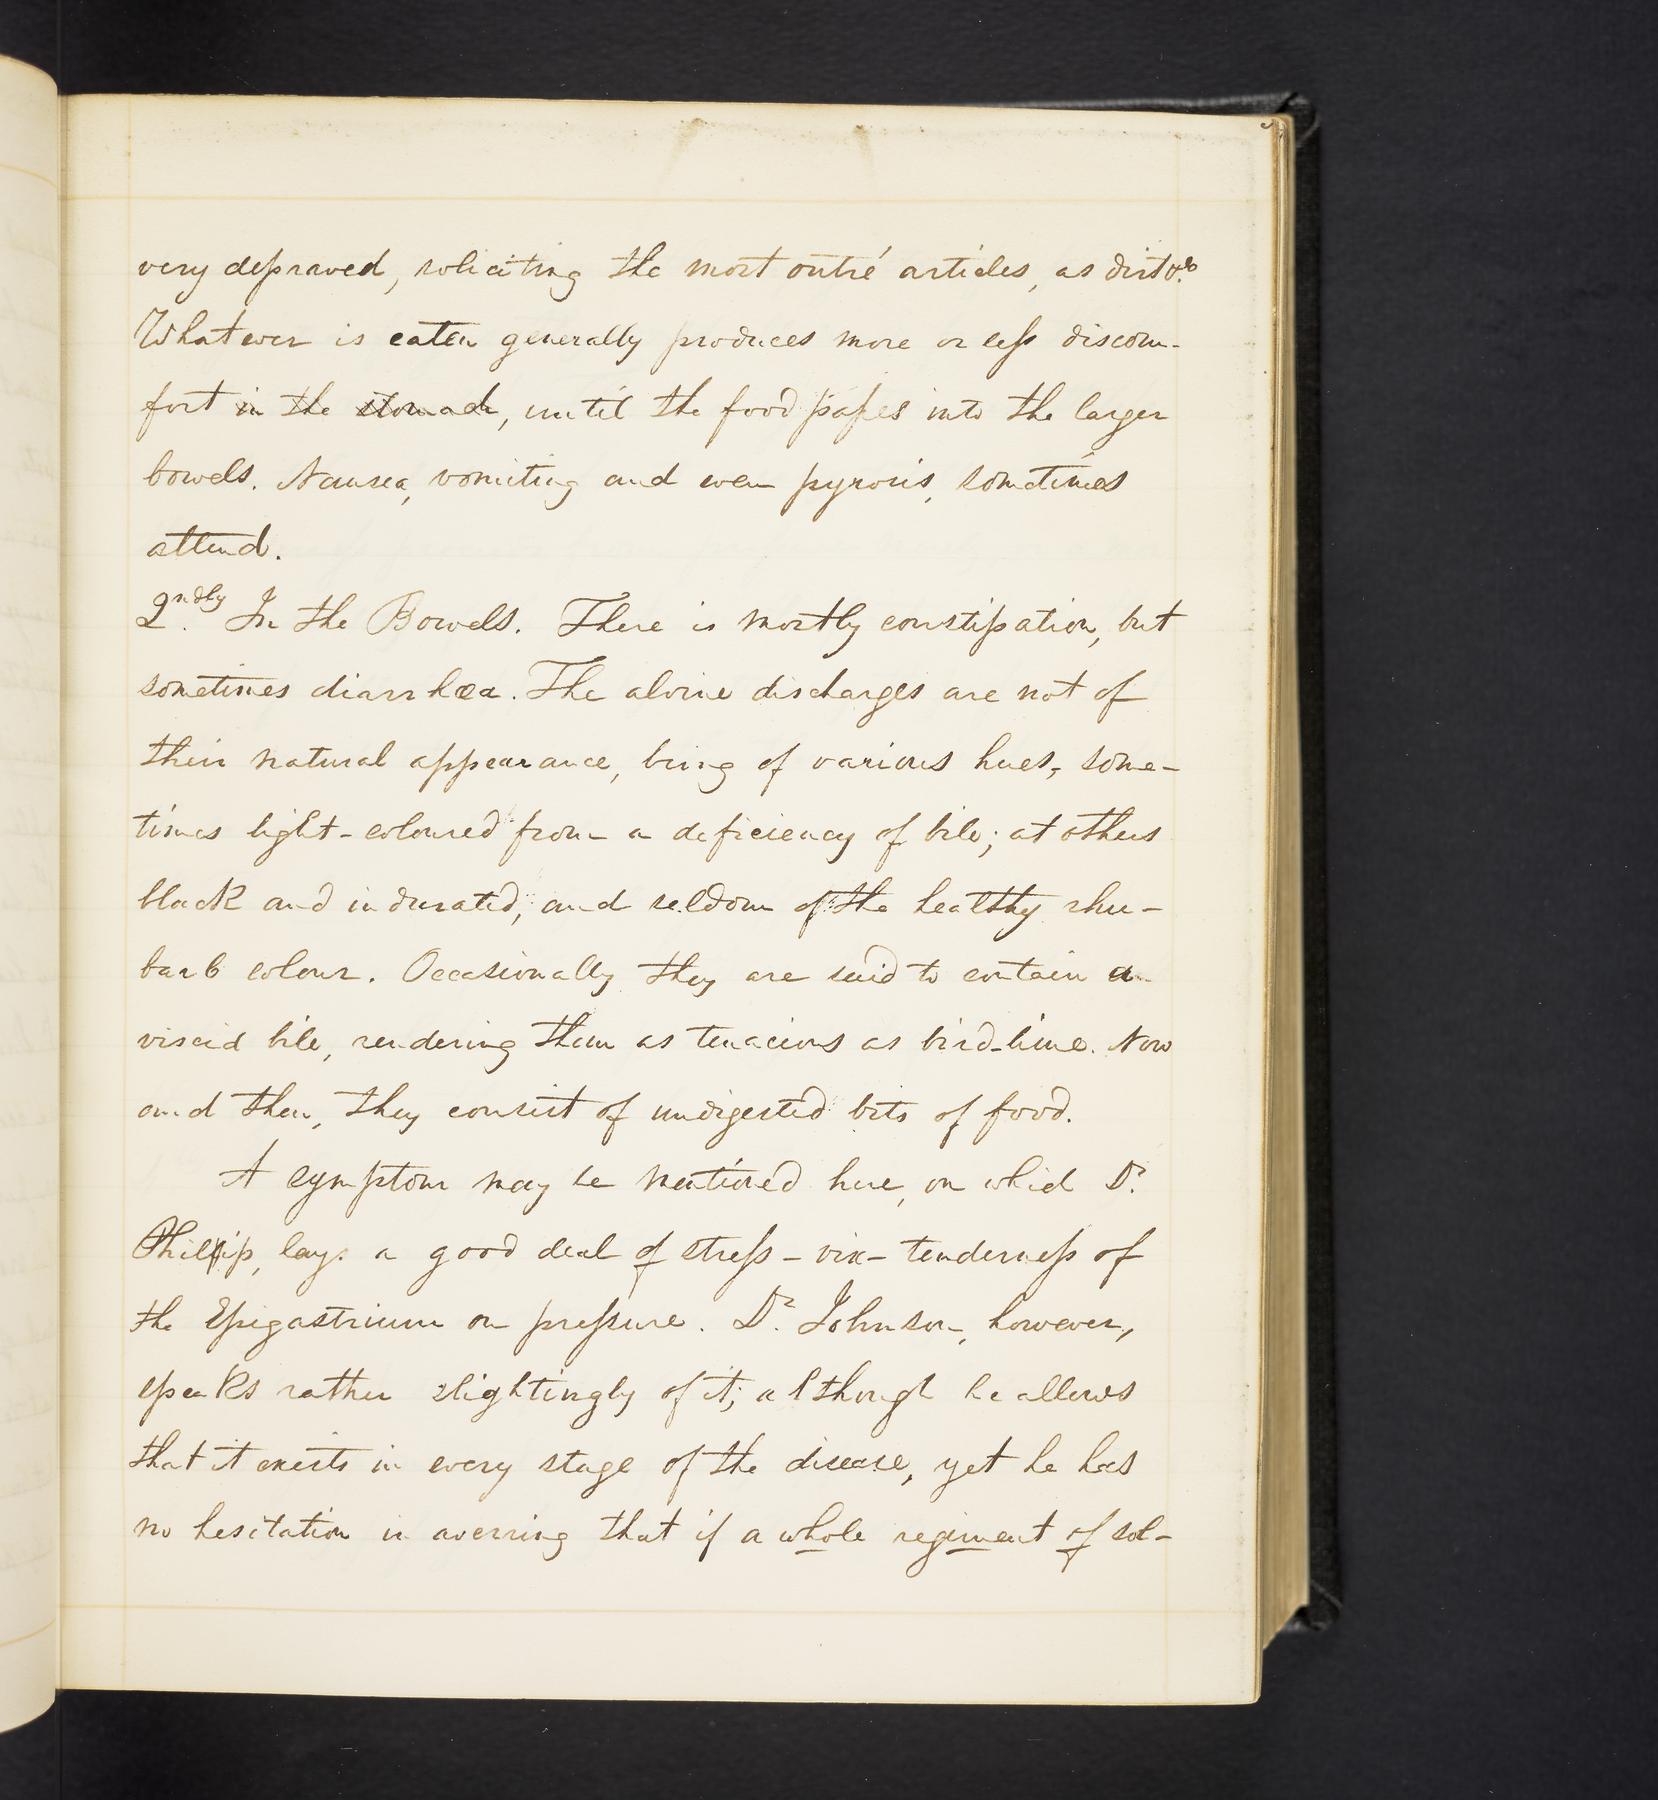 very depraved, soliciting the most outré articles, as dirt &c.
Whatever is eaten generally produces more or less discom-
fort in the stomach, until the food passes into the larger
bowels. Nausea, vomiting and even pyrosis, sometimes
attend.
2.ndly In the Bowels. There is mostly constipation, but
sometimes diarrhœa. The alvine discharges are not of
their natural appearance, being of various hues, some-
times light-coloured from a deficiency of bile; at others
black and indurated, and seldom of the healthy rhu-
barb colour. Occasionally they are said to contain a
viscid bile, rendering them as tenacious as bird-lime. Now
and then, they consist of undigested bits of food.
A symptom may be mentioned here, on which Dr.
Philip, lays a good deal of stress - viz - tenderness of
the Epigastrium on pressure. Dr. Johnson, however,
speaks rather slightingly of it; although he allows
that it exists in every stage of the disease, yet he has
no hesitation in averring that if a whole regiment of sol-